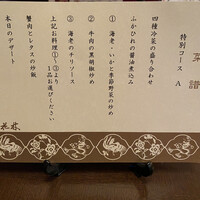 菜譜
特別コース A
四種冷菜の盛り合わせ
ふかひれの醤油煮込み
① 海老・いかと季節野菜の炒め
② 牛肉の黒胡椒炒め
③ 海老のチリソース
上記お料理①〜③より
1品お選びください
蟹肉とレタスの炒飯
本日のデザート